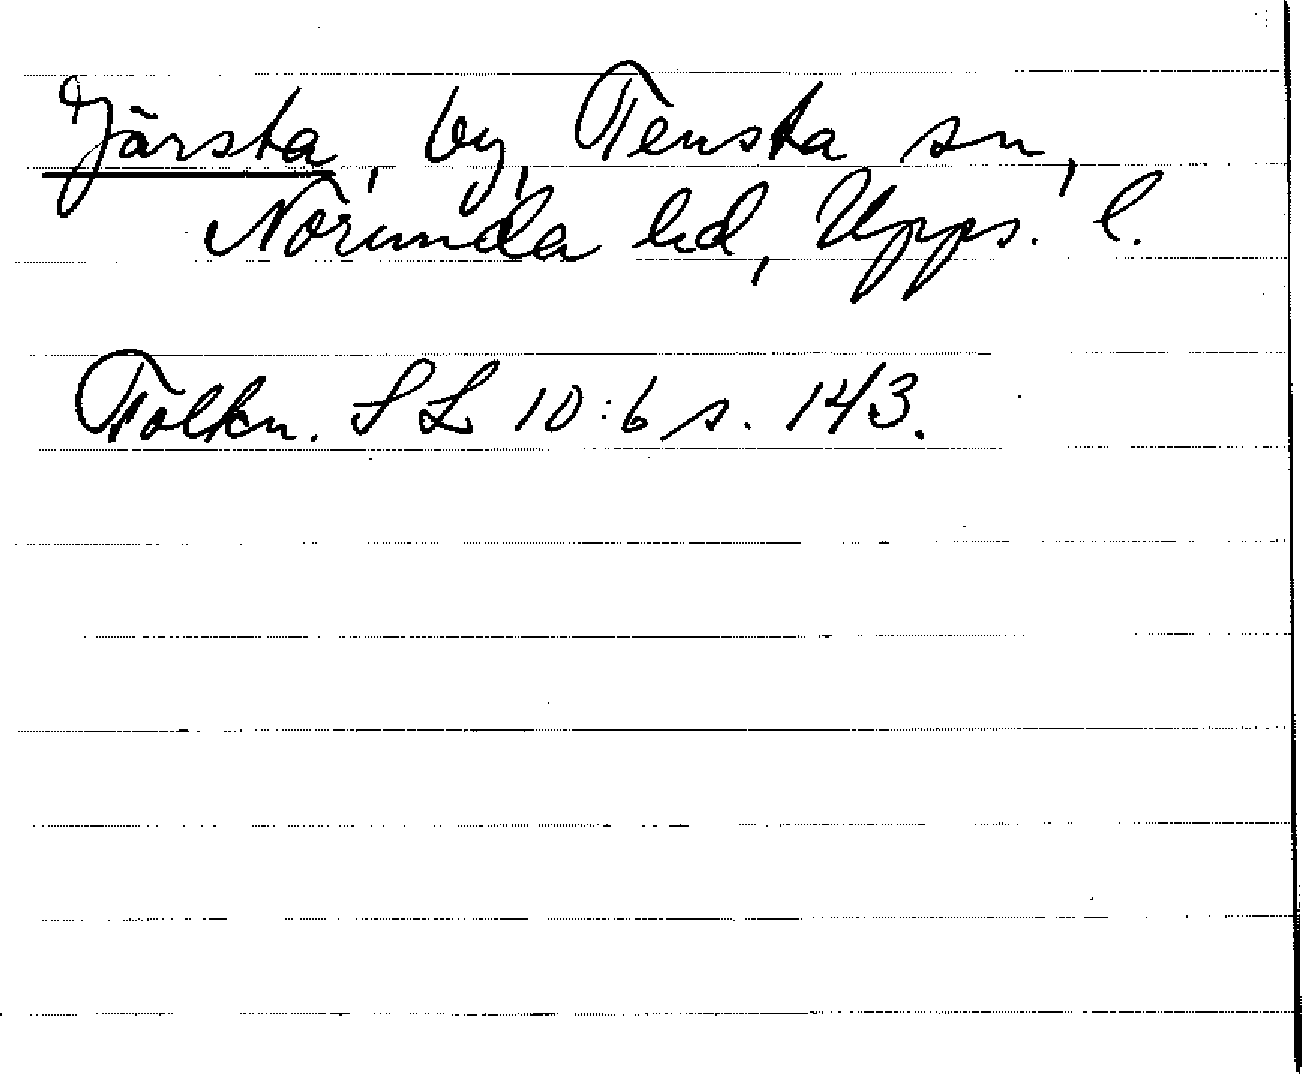 Järsta, by, Tensta sn,
Norunda hd, Upps. l.
Folkn. SL 10:6 s. 143.